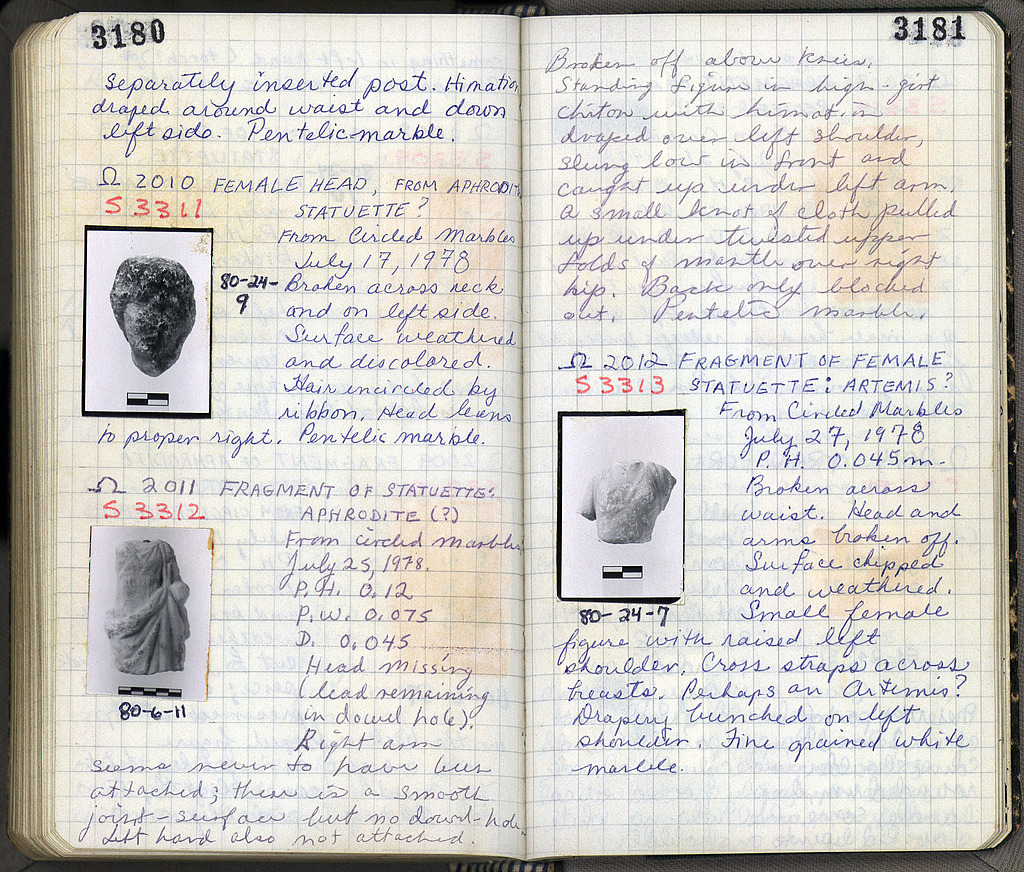 3180
separately inserted post. Himation
draped around waist and down
left side. Pentelic marble.
Ω 2010 FEMALE HEAD, FROM APHRODITE
S 3311 STATUETTE?
From Circled Marbles
July 17, 1978
80-24-9
Broken across neck
and on left side.
Surface weathered
and discolored.
Hair encircled by
ribbon. Head leans
to proper right. Pentelic marble.
Ω 2011 FRAGMENT OF STATUETTE:
S 3312 APHRODITE (?)
From circled marbles
July 25, 1978.
P.H. 0.12
P.W. 0.075
D. 0.045
Head missing
(lead remaining
in dowel hole).
80-6-11
Right arm
seems never to have been
attached; there is a smooth
joint-surface but no dowel-hole.
Left hand also not attached.
3181
Broken off above knees.
Standing figure in high-girt
chiton with himation
draped over left shoulder,
slung low in front and
caught up under left arm.
A small knot of cloth pulled
up under twisted upper
folds of mantle over right
hip. Back only blocked
out. Pentelic marble.
Ω 2012 FRAGMENT OF FEMALE
S 3313 STATUETTE: ARTEMIS?
From Circled Marbles
July 27, 1978
P.H. 0.045m.
Broken across
waist. Head and
arms broken off.
Surface chipped
and weathered.
Small female
80-24-7
figure with raised left
shoulder. Cross straps across
breasts. Perhaps an Artemis?
Drapery bunched on left
shoulder. Fine grained white
marble.